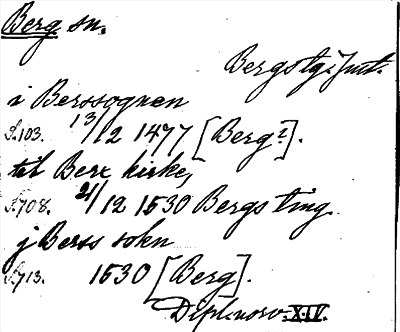 Berg sn.
Bergstg i Jmt.
i Berssognen
S. 103. 13/12 1477 [Berg?].
til Berx kirke,
S. 708. 21/12 1530 Bergs ting.
j Berss sokn
S. 713. 1530 [Berg].
Dipl. norv. XIV.